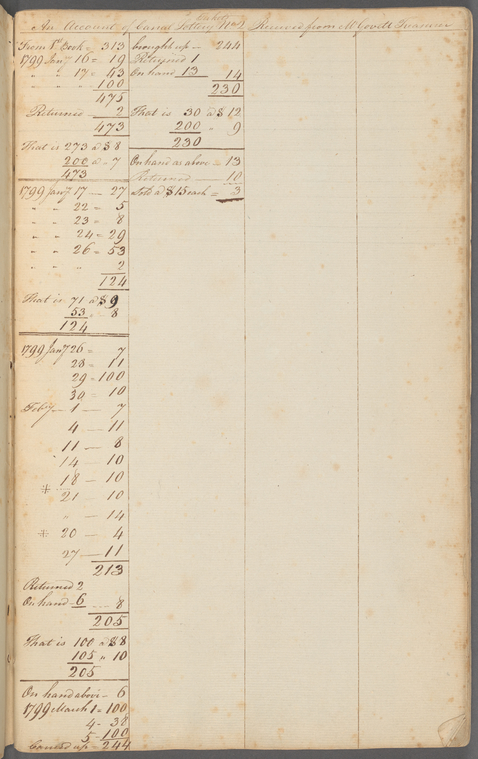 Tickets
An Account of Canal Lottery No 2 Received from M Govett Treasurer
From 1st Book - 313
1799 Jany 16 = 19
" " 17 = 43
" " - 100
475
Returned - 2
473
That is 273 a $8
200 a - 7
473
1799 Jany 17 - 27
" " 22 = 5
" " 23 = 8
" " 24 = 29
" " 26 - 53
" " " 2
124
That is 71 a $9
53 - 8
124
1799 Jany 26 = 7
28 = 11
29 = 100
30 = 10
Feby - 1 - 7
4 - 11
11 - 8
14 - 10
18 - 10
* 21 - 10
" - 14
* 20 - 4
27 - 11
213
Returned 2
On hand 6 - 8
205
That is 100 a $8
105 " 10
205
On hand above - 6
1799 March 1 = 100
4 - 38
5 - 100
Carried up - 244
brought up - 244
Returned 1
On hand 13 14
230
That is 30 a $12
200 " 9
230
On hand as above = 13
Returned 10
Sold a $15 each = 3